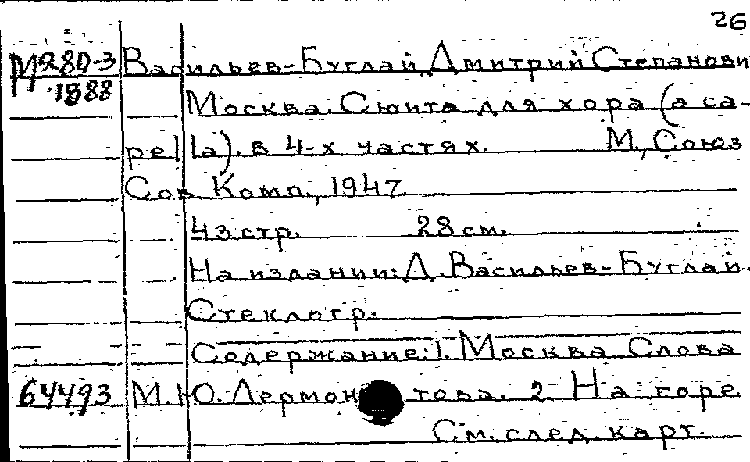 26
М280-3 Васильев-Буглай, Дмитрий Степанови
1888
Москва. Сюита для хора (a ca-
pella). в 4-х частях. М., Союз
Сов Комп., 1947
43 стр. 28 см.
На издании: Д. Васильев-Буглай.
Стеклогр.
Содержание: 1. Москва Слова
64493 М.Ю. Лермонтова. 2. На горе
См. след. карт.